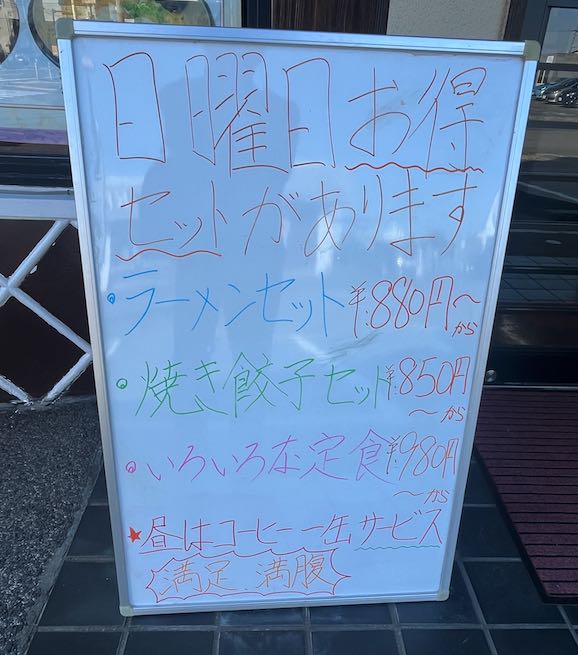 日曜日お得
セットがあります
・ラーメンセット ¥880円～から
・焼き餃子セット ¥850円～から
・いろいろな定食 ¥980円～から
★昼はコーヒー一缶サービス
満足 満腹